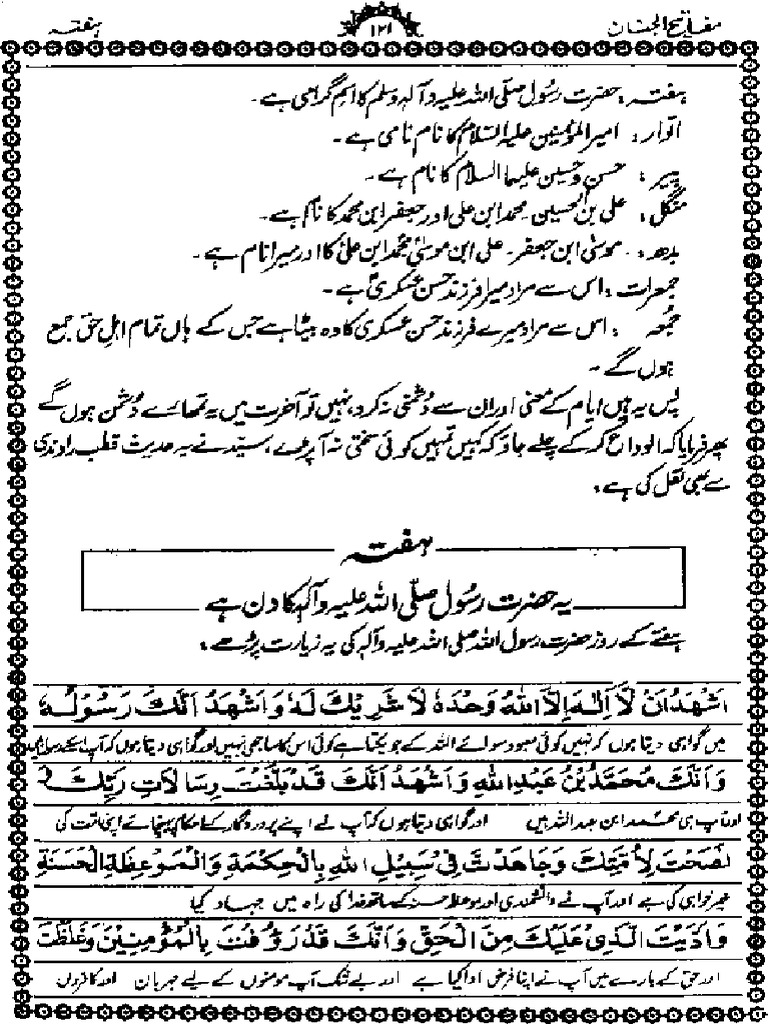 مفاتیح الجنان
۱۲۱
ہفتہ
ہفتہ: حضرت رسول صلّی اللہ علیہ وآلہ وسلم کا اسم گرامی ہے۔
اتوار: امیر المؤمنین علیہ السلام کا نام نامی ہے۔
پیر: حسن و حسین علیہما السلام کا نام ہے۔
منگل: علی بن الحسین، محمد ابن علی اور جعفر ابن محمد کا نام ہے۔
بدھ: موسٰی ابن جعفر۔ علی ابن موسٰی محمد ابن علی کا اور میرا نام ہے۔
جمعرات: اس سے مراد میرا فرزند حسن عسکری ہے۔
جمعہ: اس سے مراد میرے فرزند حسن عسکری کا وہ بیٹا ہے جس کے ہاں تمام اہل حق جمع
ہوں گے۔
پس یہ ہیں ایام کے معنی اور ان سے دشمنی نہ کرو، نہیں تو آخرت میں یہ تمہارے دشمن ہوں گے
پھر فرمایا کہ الوداع کر کے چلے جاؤ کہ کہیں تمہیں کوئی سختی نہ آ پڑے، سید نے یہ حدیث قطب راوندی
سے بھی نقل کی ہے۔
ہفتہ
یہ حضرت رسول صلّی اللہ علیہ وآلہ کا دن ہے
ہفتے کے روز حضرت رسول اللہ صلی اللہ علیہ وآلہ کی یہ زیارت پڑھے:
اَشْهَدُ اَنْ لَّا اِلٰهَ اِلَّا اللّٰهُ وَحْدَهٗ لَا شَرِيْكَ لَهٗ وَاَشْهَدُ اَنَّكَ رَسُوْلُهٗ
میں گواہی دیتا ہوں کہ نہیں کوئی معبود سوائے اللہ کے جو یکتا ہے کوئی اس کا ساجھی نہیں اور گواہی دیتا ہوں کہ آپ اسکے رسول ہیں
وَاَنَّكَ مُحَمَّدُ بْنُ عَبْدِ اللّٰهِ وَاَشْهَدُ اَنَّكَ قَدْ بَلَّغْتَ رِسَالَاتِ رَبِّكَ
اور آپ ہی محمد ابن عبد اللہ ہیں اور گواہی دیتا ہوں کہ آپ نے اپنے پروردگار کے احکام پہنچائے اپنی امت کی
نَصَحْتَ لِاُمَّتِكَ وَجَاهَدْتَ فِيْ سَبِيْلِ اللّٰهِ بِالْحِكْمَةِ وَالْمَوْعِظَةِ الْحَسَنَةِ
خیر خواہی کی ہے اور آپ نے دانشمندی اور موعظہ حسنہ کے ساتھ خدا کی راہ میں جہاد کیا
وَاَدَّيْتَ الَّذِيْ عَلَيْكَ مِنَ الْحَقِّ وَاَنَّكَ قَدْ رَؤُفْتَ بِالْمُؤْمِنِيْنَ وَغَلُظْتَ
اور حق کے بارے میں آپ نے اپنا فرض ادا کیا ہے اور بے شک آپ مومنوں کے لیے مہربان اور کافروں